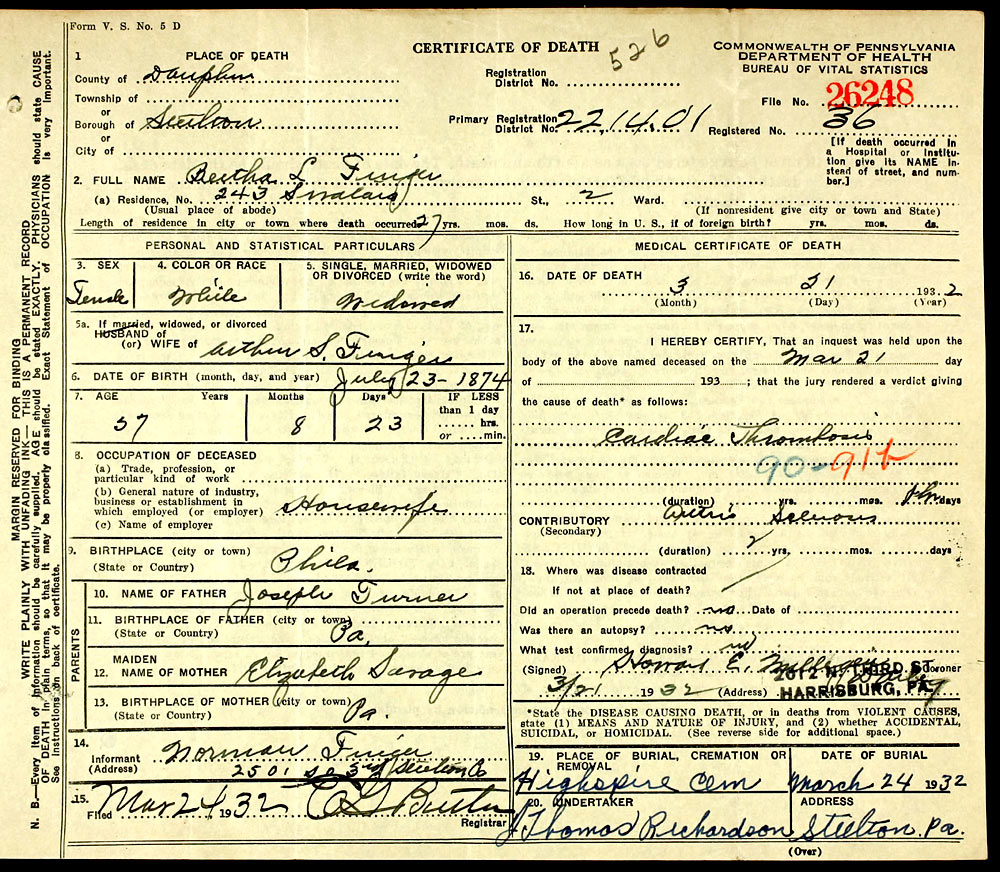 Form V. S. No. 5 D
CERTIFICATE OF DEATH
526
COMMONWEALTH OF PENNSYLVANIA
DEPARTMENT OF HEALTH
BUREAU OF VITAL STATISTICS
1 PLACE OF DEATH
County of Dauphin
Township of
or
Borough of Steelton
or
City of
Registration District No.
Primary Registration District No. 221401
File No. 26248
Registered No. 36
[If death occurred in a Hospital or Institution give its NAME instead of street, and number.]
2. FULL NAME Bertha L Finger
(a) Residence, No. 243 St., 2 Ward.
(Usual place of abode) (If nonresident give city or town and State)
Length of residence in city or town where death occurred 27 yrs. mos. ds. How long in U. S., if of foreign birth? yrs. mos. ds.
PERSONAL AND STATISTICAL PARTICULARS
3. SEX
Female
4. COLOR OR RACE
White
5. SINGLE, MARRIED, WIDOWED OR DIVORCED (write the word)
Widowed
5a. If married, widowed, or divorced
HUSBAND of
(or) WIFE of Arthur S. Finger
6. DATE OF BIRTH (month, day, and year) July 23 - 1874
7. AGE Years Months Days IF LESS than 1 day
57 8 23 hrs. or min.
8. OCCUPATION OF DECEASED
(a) Trade, profession, or particular kind of work
(b) General nature of industry, business or establishment in which employed (or employer) Housewife
(c) Name of employer
9. BIRTHPLACE (city or town)
(State or Country) Phila.
PARENTS
10. NAME OF FATHER Joseph Turner
11. BIRTHPLACE OF FATHER (city or town)
(State or Country) Pa.
12. MAIDEN NAME OF MOTHER Elizabeth Savage
13. BIRTHPLACE OF MOTHER (city or town)
(State or Country) Pa.
14. Informant Norman Finger
(Address) 2501 So 3rd Steelton Pa
15. Filed Mar 24 1932 Registrar
MEDICAL CERTIFICATE OF DEATH
16. DATE OF DEATH 3 21 1932
(Month) (Day) (Year)
17. I HEREBY CERTIFY, That an inquest was held upon the
body of the above named deceased on the Mar 21 day
of 193 ; that the jury rendered a verdict giving
the cause of death* as follows:
Cardiac Thrombosis
90-91b
(duration) yrs. mos. days
CONTRIBUTORY
(Secondary)
(duration) 2 yrs. mos. days
18. Where was disease contracted
If not at place of death?
Did an operation precede death? no Date of
Was there an autopsy? no
What test confirmed diagnosis? no
(Signed) Howard E. Coroner
3/21 1932 (Address) 2012 N. THIRD ST.
HARRISBURG, PA.
*State the DISEASE CAUSING DEATH, or in deaths from VIOLENT CAUSES, state (1) MEANS AND NATURE OF INJURY, and (2) whether ACCIDENTAL, SUICIDAL, or HOMICIDAL. (See reverse side for additional space.)
19. PLACE OF BURIAL, CREMATION OR REMOVAL
Highspire Cem
DATE OF BURIAL
March 24 1932
20. UNDERTAKER
J Thomas Richardson
ADDRESS
Steelton, Pa.
(Over)
MARGIN RESERVED FOR BINDING
WRITE PLAINLY WITH UNFADING INK—THIS IS A PERMANENT RECORD
N. B.—Every item of information should be carefully supplied. AGE should be stated EXACTLY. PHYSICIANS should state CAUSE
OF DEATH in plain terms, so that it may be properly classified. Exact Statement of OCCUPATION is very important.
See instructions on back of certificate.